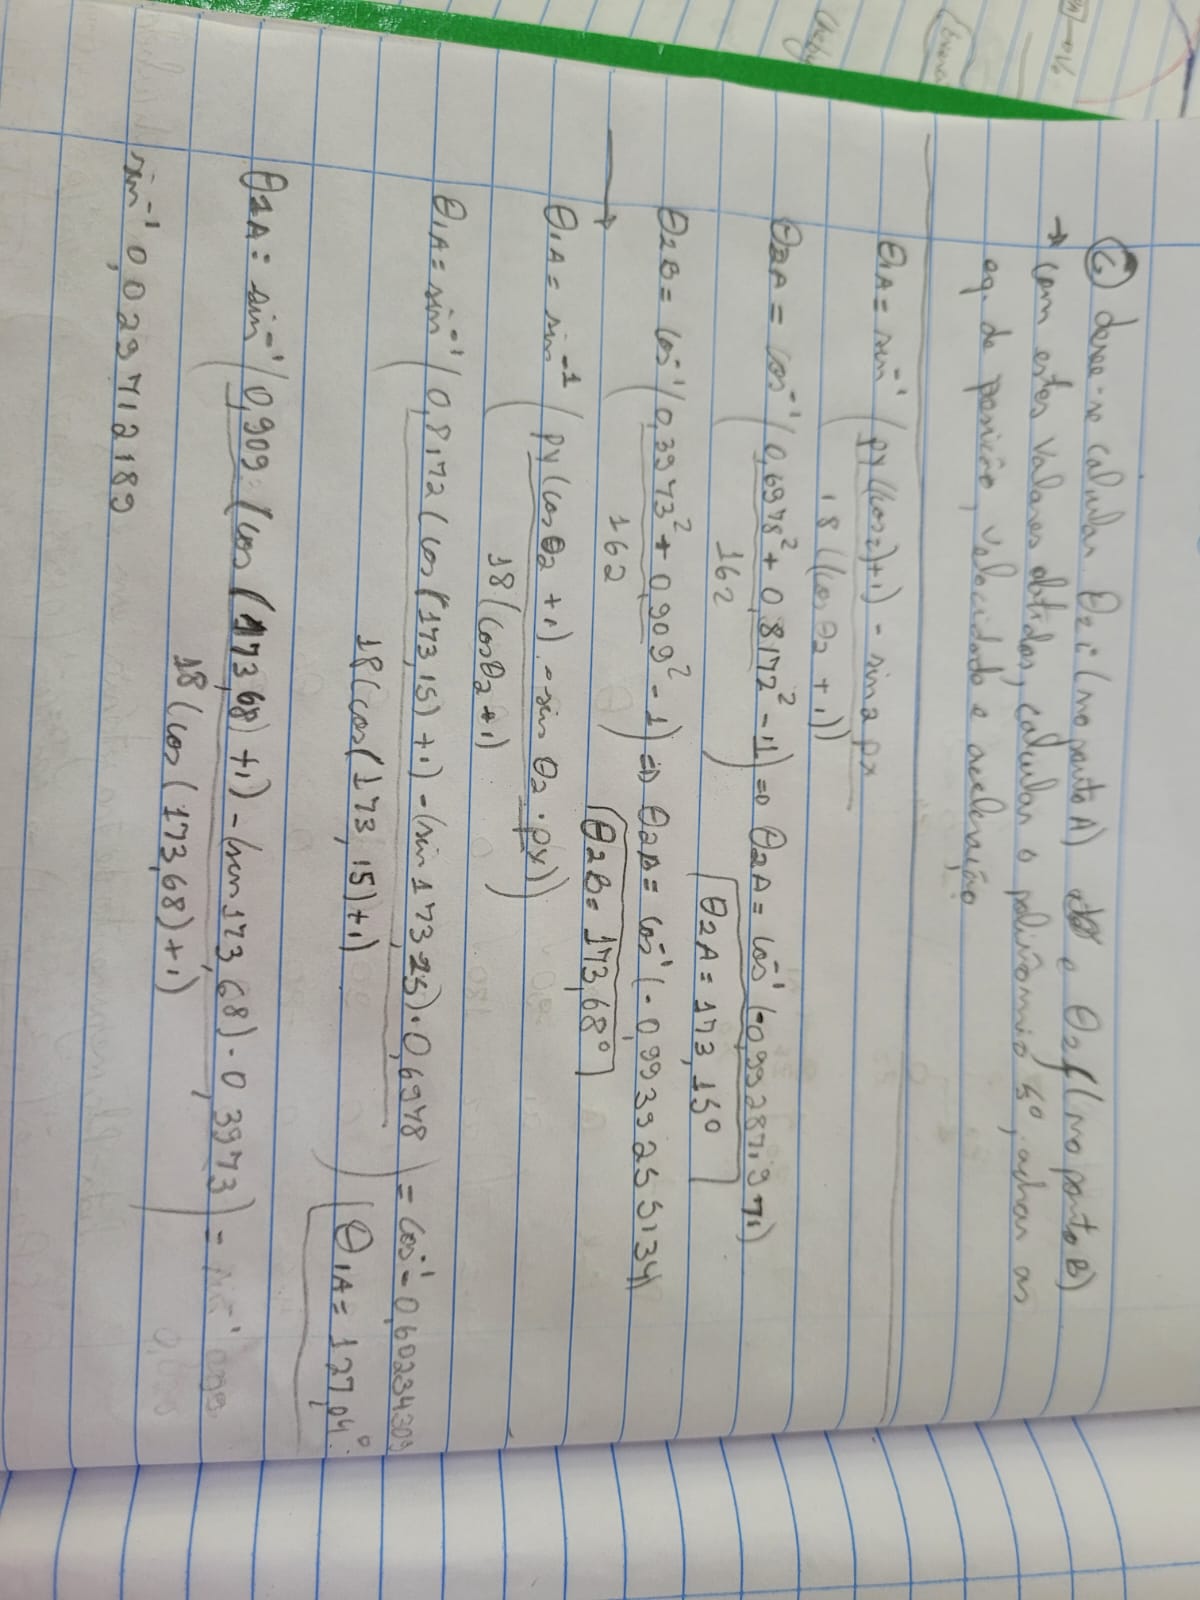 C) deve-se calcular θ2i (no ponto A) e θ2f (no ponto B)
→ com estes valores obtidos, calcular o polinômio 5º, achar as
eq. de posição, velocidade e aceleração
θ1A = sin⁻¹ (py((cos2)+1) - sin2px
18((cosθ2+1))
θ2A = cos⁻¹ (0,6978² + 0,8172² - 1) ⇒ θ2A = cos⁻¹(-0,99287,971)
162
θ2A = 173,15º
θ2B = cos⁻¹ (0,3973² + 0,909² - 1) ⇒ θ2B = cos⁻¹(-0,9939255134)
162
θ2B = 173,68º
→
θ1A = sin⁻¹ (py(cosθ2+1) - sin θ2 · px))
18(cosθ2+1)
θ1A = sin⁻¹ (0,8172(cos(173,15)+1) - (sin 173,25)·0,6978) = cos⁻¹ -0,60234309
18(cos(173,15)+1)
θ1A = 127,04º
θ2A = sin⁻¹ (0,909·(cos(173,68)+1) - (sen173,68)·0,3973) =
18(cos(173,68)+1)
sin⁻¹ 0,029712189